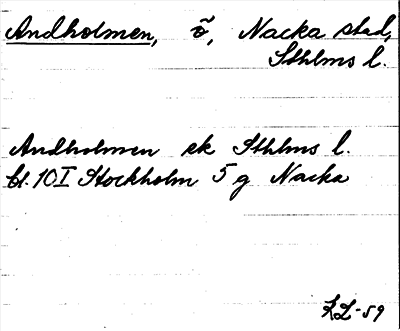 Andholmen, ö, Nacka stad,
Sthlms l.
Andholmen ek Sthlms l.
bl. 10 I Stockholm 5 g Nacka